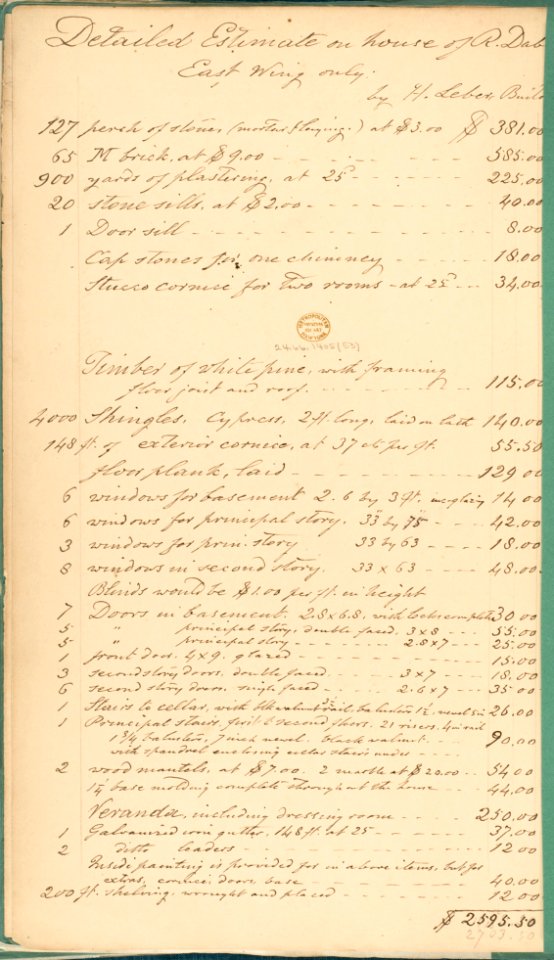 Detailed Estimate on house of R. Dab
East Wing only.
by H. Leber, Build
127 perch of stone, (mortar & laying.) at $3.00 $ 381.00
65 M brick, at $9.00 - - - 585.00
900 yards of plastering, at 25 - - - 225.00
20 stone sills, at $2.00 - - - 40.00
1 Door sill - - - 8.00
Cap stones for one chimney - - - 18.00
Stucco cornice for Two rooms - at 25 - - - 34.00
METROPOLITAN
24.66.1405(53)
Timber of white pine, with framing
floor joist and roof. - - - 115.00
4000 Shingles. Cypress, 2 ft. long, laid on lath 140.00
148 ft. of exterior cornice, at 37 cts per ft. 55.50
floor plank, laid - - - 129 00
6 windows for basement 2.6 by 3 ft. inc glazing 14 00
6 windows for principal story. 33" by 75" - - - 42.00
3 windows for prin. story 33 by 63 - - - 18.00
8 windows in second story. 33 x 63 - - - 48.00
Blinds would be $1.00 per ft. in height
7 Doors in basement. 2.8 x 6.8, with locks complete 30 00
5 " principal story, double faced. 3 x 8 - - - 55.00
5 " principal story - - - 2.8 x 7 - - - 25.00
1 front door. 4 x 9. glazed - - - 15.00
3 second story doors, double faced - - - 3 x 7 - - - 18.00
6 second story doors. single faced - - - 2.6 x 7 - - - 35 00
1 Stairs to cellar, with blk walnut rail, balusters 1 1/2. newel 5 in 26.00
1 Principal stairs, first to second floors. 21 risers. 4 in rail
1 3/4 baluster, 7 inch newel. black walnut. - - - 90.00
with spandrel enclosing cellar stairs under - - -
2 wood mantels, at $7.00. 2 marble at $20.00 - - 54 00
base molding complete throughout the house - - - 44.00
Veranda, including dressing room - - - 250.00
1 Galvanized iron gutter. 148 ft. at 25 - - - 37.00
2 ditto leaders - - - 12 00
Inside painting is provided for in above items, but for
extras, cornice, doors base - - - 40.00
200 ft. shelving wrought and placed - - - 12 00
$ 2595.50